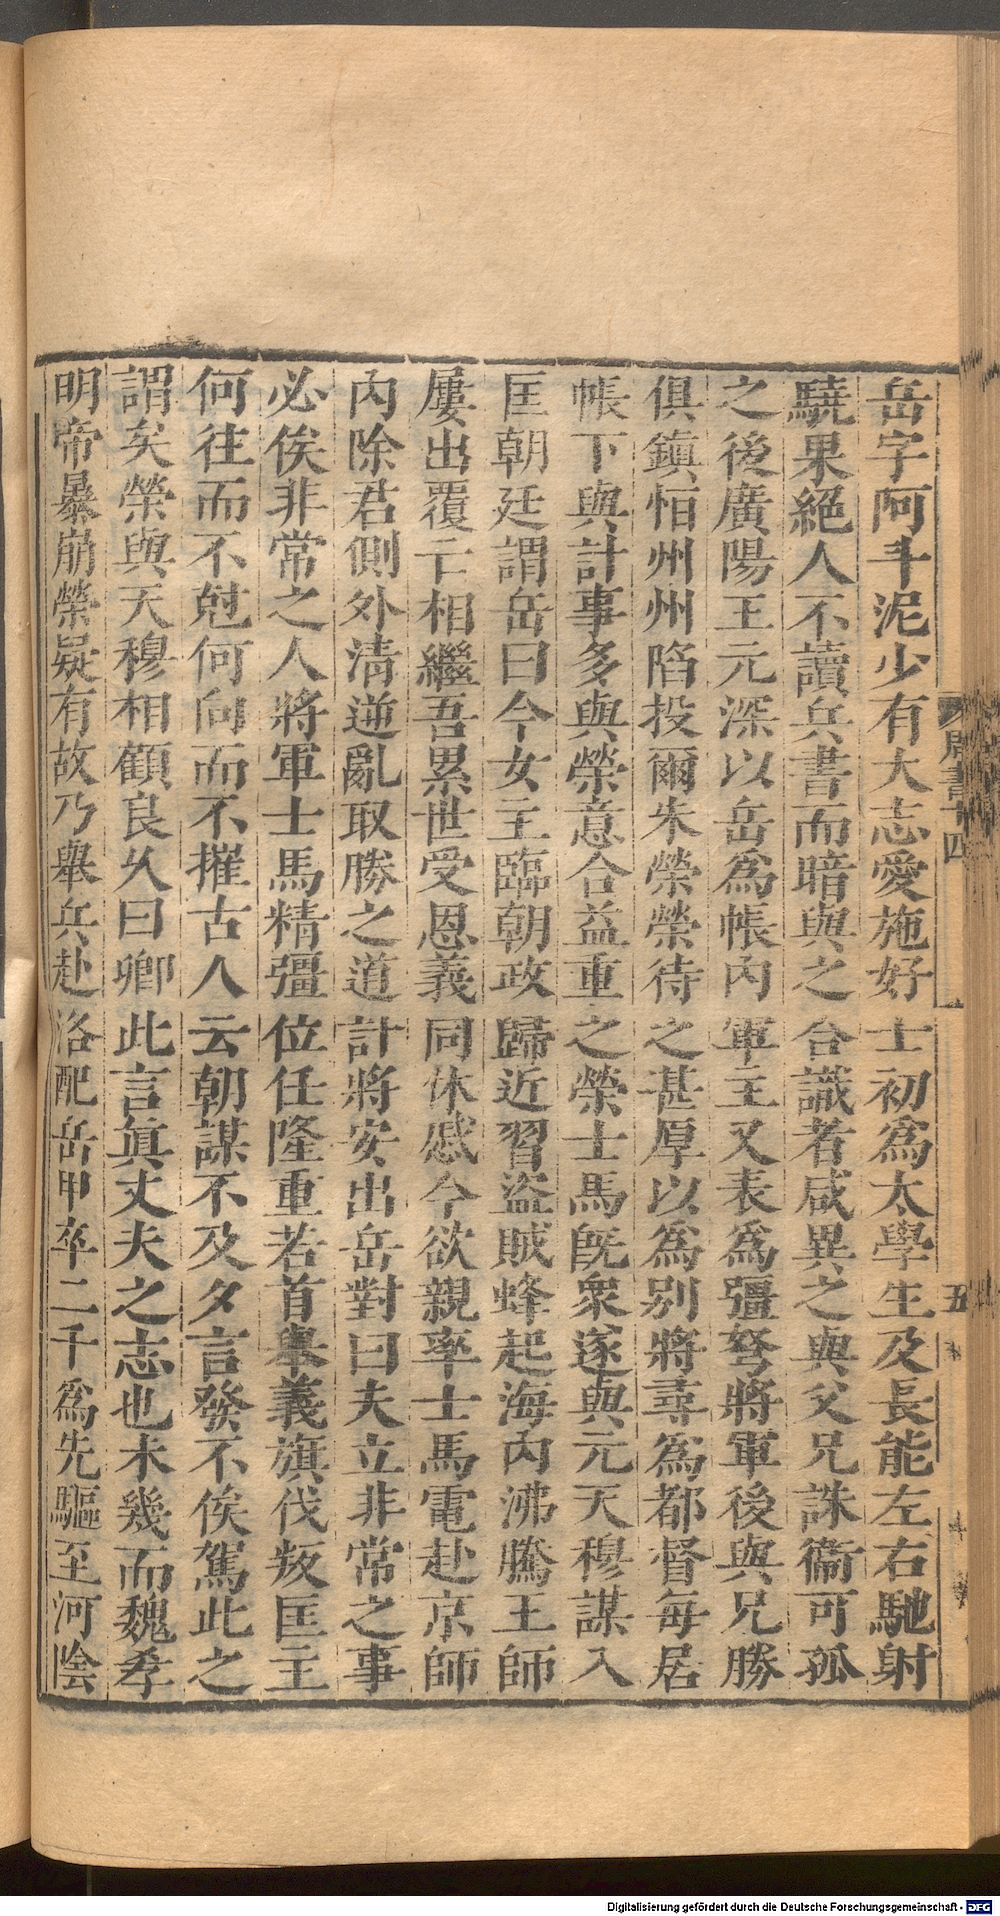 岳字阿斗泥少有大志愛施好士初爲太學生及長能左右馳射
驍果絕人不讀兵書而暗與之合識者咸異之與父兄誅衞可孤
之後廣陽王元深以岳爲帳內軍主又表爲彊弩將軍後與兄勝
俱鎮恒州州陷投爾朱榮榮待之甚厚以爲別將尋爲都督每居
帳下與計事多與榮意合益重之榮士馬旣衆遂與元天穆謀入
匡朝廷謂岳曰今女主臨朝政歸近習盜賊蜂起海內沸騰王師
屢出覆亡相繼吾累世受恩義同休慼今欲親率士馬電赴京師
內除君側外淸逆亂取勝之道計將安出岳對曰夫立非常之事
必俟非常之人將軍士馬精彊位任隆重若首舉義旗伐叛匡主
何往而不尅何向而不摧古人云朝謀不及夕言發不俟駕此之
謂矣榮與天穆相顧良久曰卿此言眞丈夫之志也未幾而魏孝
明帝暴崩榮疑有故乃舉兵赴洛配岳甲卒二千爲先驅至河陰
周書十四
五
Digitalisierung gefördert durch die Deutsche Forschungsgemeinschaft - DFG